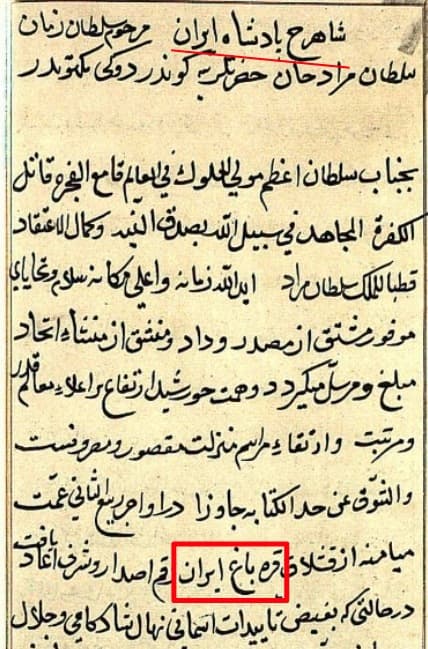 شاهرخ پادشاه ایران مرحوم سلطان زمان
سلطان مرادخان حضرتلرینه کوندردوکی مکتوبدر
بجناب سلطان اعظم مولی الملوک فی العالم قامع الفجرة قاتل
الکفرة المجاهد فی سبیل الله بصدق النیه وکمال الاعتقاد
قطبا للملک سلطان مراد ابد الله زمانه واعلی مکانه سلام وتحایای
موفور مشتق از مصدر وداد ومنشق از منشاء اتحاد
مبلغ ومرسل میکردد وهمت خورشید ارتفاع بر اعلاء معاقدر
ومرتبت وارتقاء مراسم منزلت مقصور ومعروفست
والتوق عن حد الکتابه جاوزا در اواخر ربیع الثانی عمّت
میامنه از قشلاق قره باغ ایران رقم اصدار وشرف انفاد یافت
در حالتی که بفیض تاییدات آسمانی نهال شادکامی وجلال